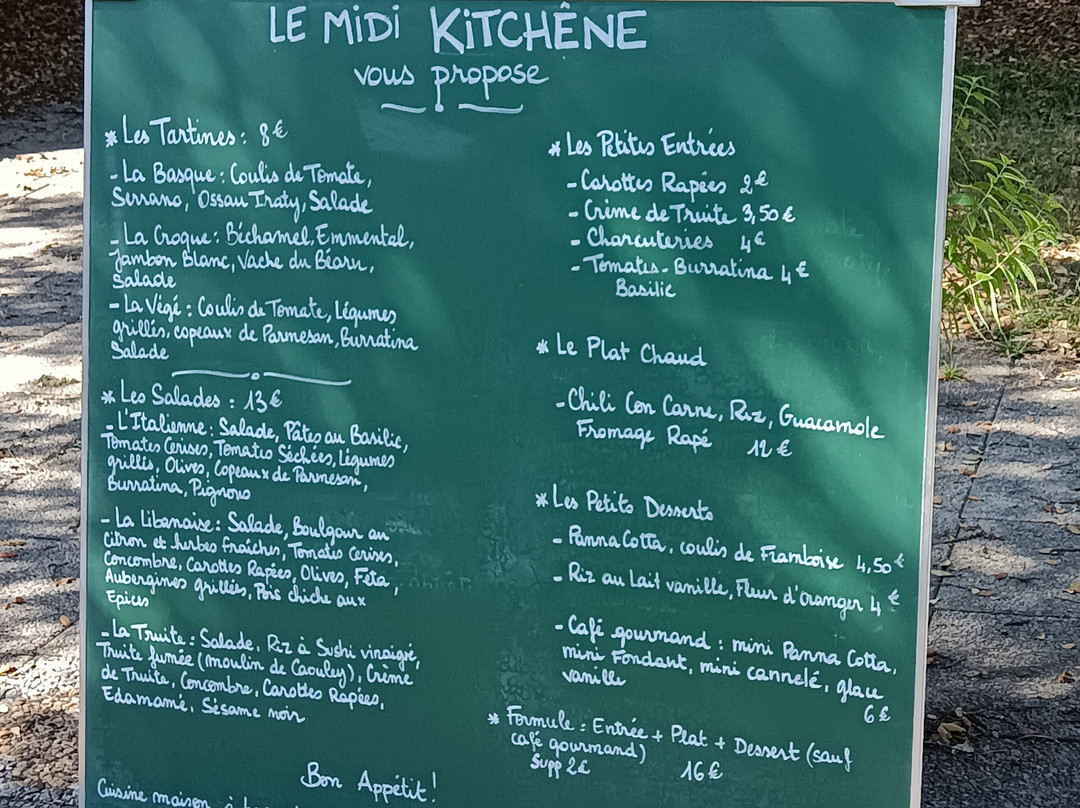 LE MiDi KiTCHÊNE
vous propose
* Les Tartines : 8€
- La Basque : Coulis de Tomate,
Serrano, Ossau Iraty, Salade
- La Croque : Béchamel, Emmental,
Jambon Blanc, Vache du Béarn,
Salade
- La Végé : Coulis de Tomate, Légumes
grillés, copeaux de Parmesan, Burratina
Salade
* Les Salades : 13€
- L'Italienne : Salade, Pâtes au Basilic,
Tomates Cerises, Tomates Séchées, Légumes
grillés, Olives, Copeaux de Parmesan,
Burratina, Pignons
- La Libanaise : Salade, Boulgour au
citron et herbes fraîches, Tomates cerises,
Concombre, Carottes Rapées, Olives, Feta,
Aubergines grillées, Pois chiche aux
Epices
- La Truite : Salade, Riz à Sushi vinaigré,
Truite fumée (moulin de Caouley), Crème
de Truite, Concombre, Carottes Rapées,
Edamamé, Sésame noir
Bon Appétit !
Cuisine maison
* Les Petites Entrées
- Carottes Rapées 2€
- Crème de Truite 3,50€
- Charcuteries 4€
- Tomates - Burratina 4€
Basilic
* Le Plat Chaud
- Chili Con Carne, Riz, Guacamole
Fromage Rapé 12€
* Les Petits Desserts
- Panna Cotta, coulis de Framboise 4,50€
- Riz au Lait vanille, Fleur d'oranger 4€
- Café gourmand : mini Panna Cotta,
mini Fondant, mini cannelé, glace
vanille
6€
* Formule : Entrée + Plat + Dessert (sauf
café gourmand)
Supp 2€ 16€